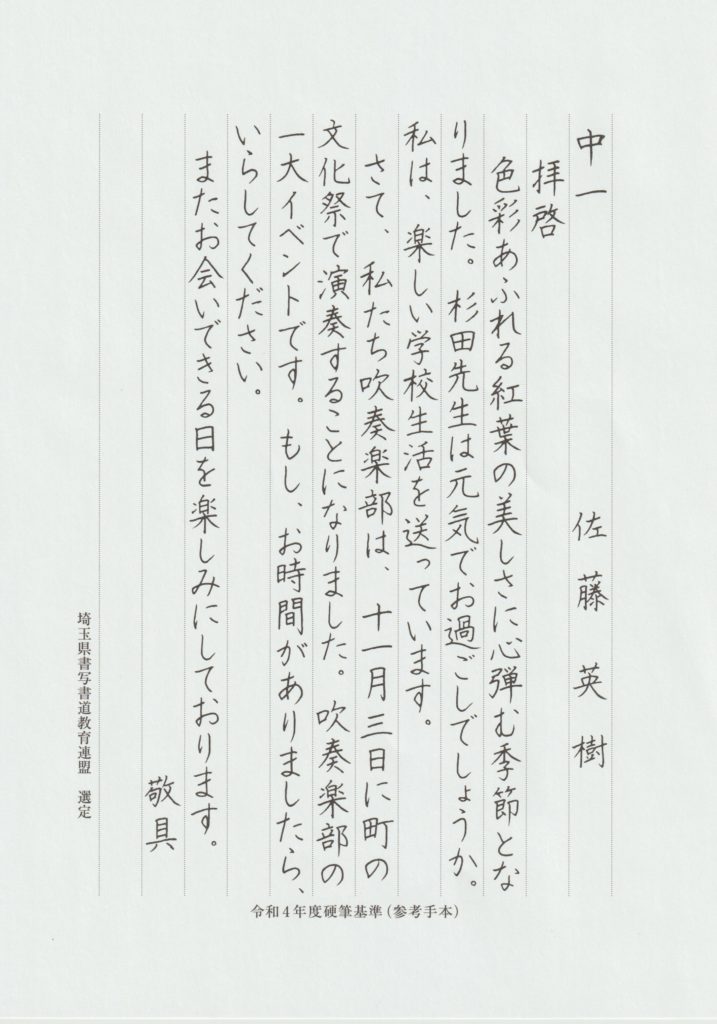 中一　佐藤英樹
拝啓
色彩あふれる紅葉の美しさに心弾む季節とな
りました。杉田先生は元気でお過ごしでしょうか。
私は、楽しい学校生活を送っています。
さて、私たち吹奏楽部は、十一月三日に町の
文化祭で演奏することになりました。吹奏楽部の
一大イベントです。もし、お時間がありましたら、
いらしてください。
またお会いできる日を楽しみにしております。
敬具
埼玉県書写書道教育連盟　選定
令和4年度硬筆基準(参考手本)